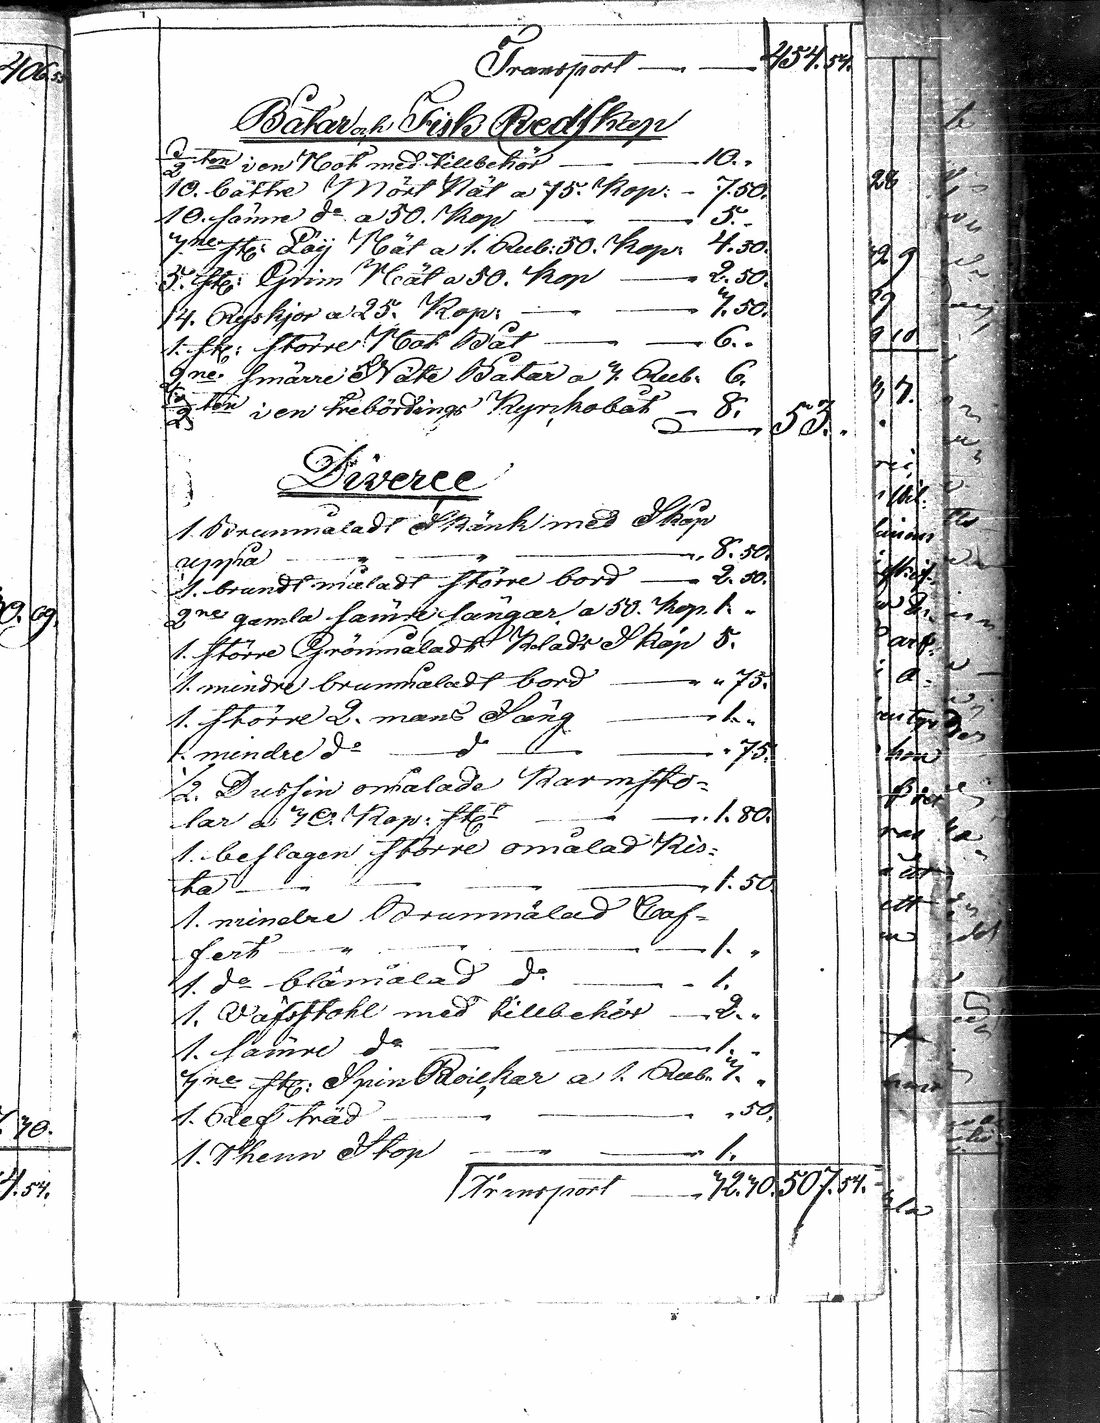 Transport — — 454. 54.
Båtar och Fisk Redskap
ten i en Not med tillbehör — — 10. "
10. bättre Mört Nät a 75. Kop: - 7. 50.
10. sämre do a 50. Kop — — 5. -
3ne st: Löij Nät a 1. Rub: 50. Kop: 4. 50.
5. st: Grim Nät a 50. Kop — 2. 50.
14. Ryskjor a 25. Kop: — — 3. 50.
1. st: större Not Båt — — 6. "
2ne. smärre Näte Båtar a 3. Rub. 6.
ten i en trebördings Kyrkobåt — 8.
53. "
Diverce
1. Brunmåladt Skänk med Skåp
uppå " " — " 8. 50.
1. brundt måladt större bord — 2. 50.
2ne gamla sämre sängar a 50. Kop. 1. "
1. större Grönmåladt Kläds Skåp 5.
1. mindre brunmåladt bord — " 75.
1. större 2. mans Säng — 1. "
1. mindre do — d — — " 75.
1/2. Dussin omålade Karmsto=
lar a 30. Kop: st — — 1. 80.
1. beslagen större omålad Kis=
ta — — — — 1. 50.
1. mindre Brunmålad Caf=
fert — " — — 1. "
1. do blåmålad do — — 1.
1. Väfsstohl med tillbehör — 2. "
1. sämre do — — 1. "
3ne st: Spin Rockar a 1. Rub. 3. "
1. Ref träd — — " 50.
1. Thenn Stop — — 1.
Transport — 32. 30. 507. 54.